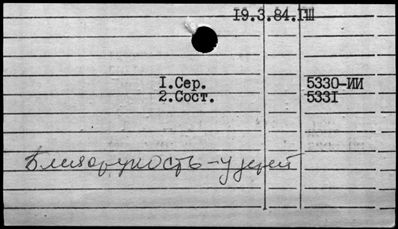 19.3.84.ГШ
1.Сер. 5330-ИИ
2.Сост. 5331
Близорукость-у детей